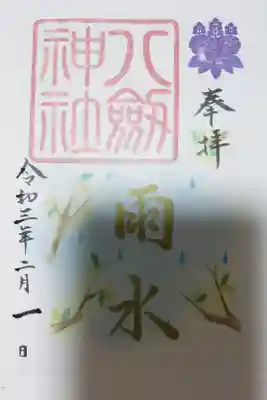 奉拝
八剱神社
雨水
令和三年二月一日